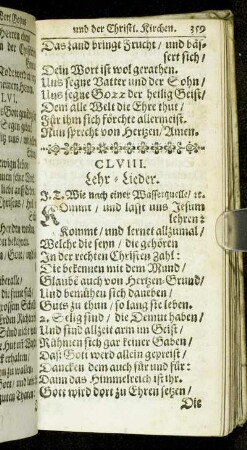 und der Christl. Kirchen. 359
Das Land bringt Frucht / und bäs-
sert sich /
Dein Wort ist wol gerathen.
Uns segne Vatter und der Sohn /
Uns segne GOTT der heilig Geist /
Dem alle Welt die Ehre thut /
Für ihm sich förchte allermeist.
Nun sprecht von Hertzen / Amen.
CLVIII.
Lehr / Lieder.
J. T. Wie nach einer Wasserquelle / ꝛc.
Kommt / und lasst uns Jesum
lehren :
Kommt / und lernet allzumal /
Welche die seyn / die gehören
In der rechten Christen Zahl:
Die bekennen mit dem Mund /
Glaubē auch von Hertzen-Grund /
Und bemühen sich daneben /
Guts zu thun / so lang sie leben.
2. Selig sind / die Demut haben /
Und sind allzeit arm im Geist /
Rühmen sich gar keiner Gaben /
Daß Gott werd allein gepreist /
Dancken dem auch für und für:
Dann das Himmelreich ist ihr.
Gott wird dort zu Ehren setzen /
Die